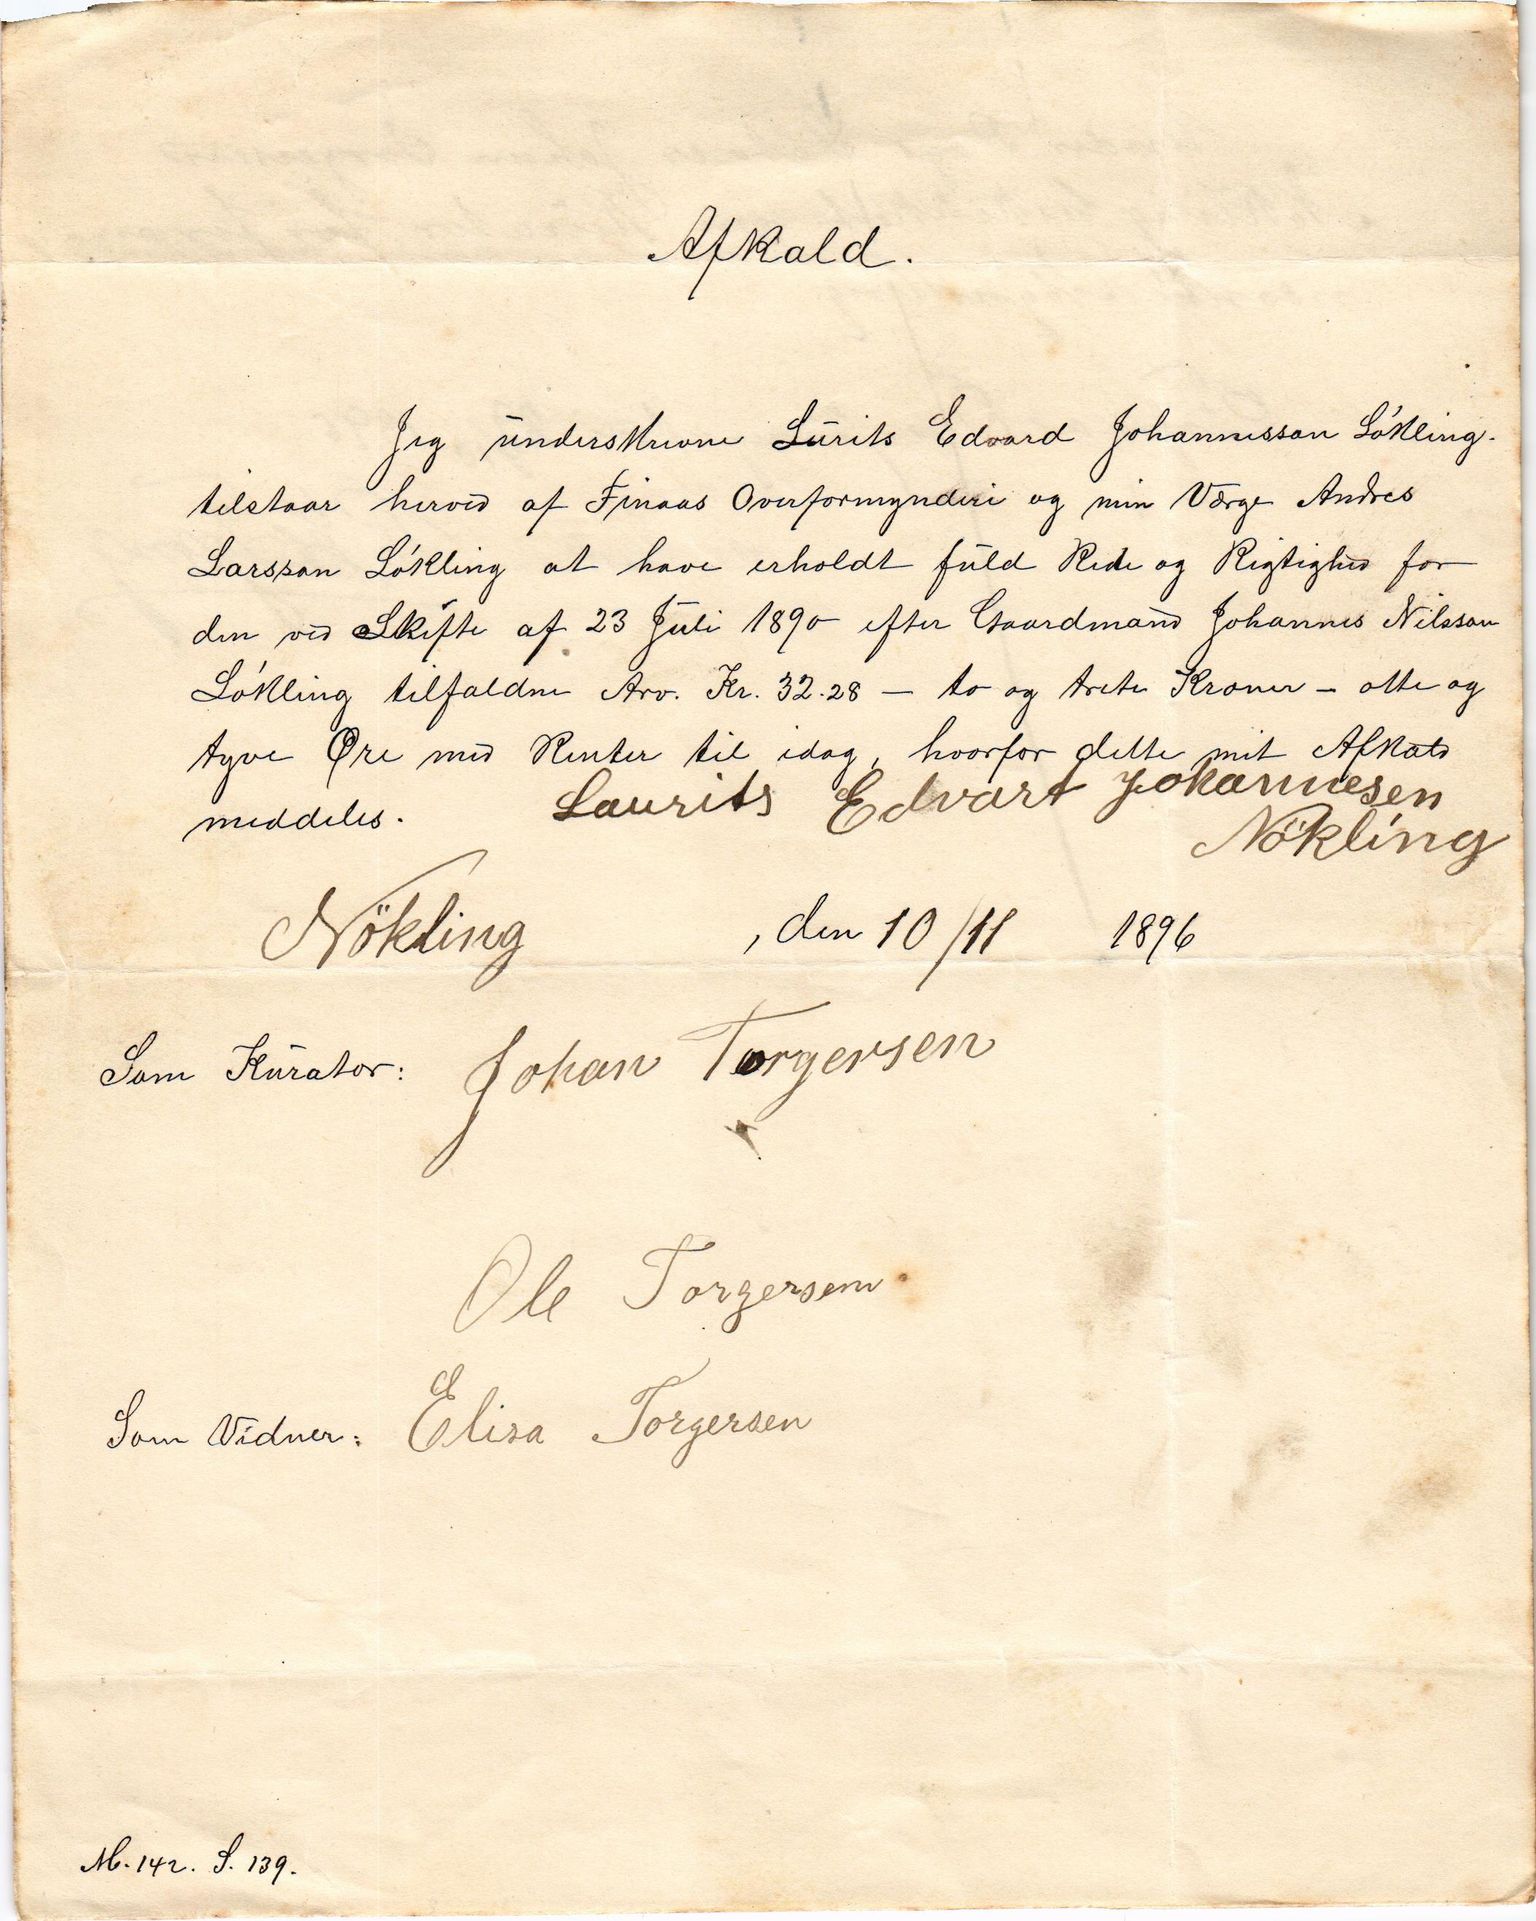 Afkald.
Jeg underskrevne Lurits Edvard Johannesson Lökling
tilstaar herved af Finaas Overformynderi og min Værge Andres
Larsson Lökling at have erholdt fuld Rede og Rigtighed for
den ved Skifte af 23 Juli 1890 efter Gaardmand Johannes Nilsson
Lökling tilfaldne Arv. Kr. 32.28 – to og treti Kroner – otte og
tyve Øre med Renter til idag, hvorfor dette mit Afkald
meddeles. Laurits Edvart Johannesen
Nökling
Nökling, den 10/11 1896
Som Kurator: Johan Torgersen
Ole Torgersen
Som Vidner: Elisa Torgersen
M. 142. S. 139.